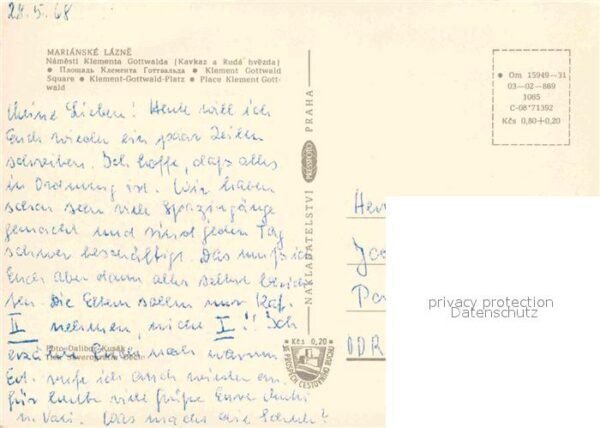 28.5.68
MARIÁNSKÉ LÁZNĚ
Náměstí Klementa Gottwalda (Kavkaz a Rudá hvězda)
● Площадь Клемента Готтвальда ● Klement Gottwald
Square ● Klement-Gottwald-Platz ● Place Klement Gott-
wald
Meine Lieben! Heute will ich
Euch wieder ein paar Zeilen
schreiben. Ich hoffe, daß alles
in Ordnung ist. Wir haben
schon sehr viele Spaziergänge
gemacht und sind jeden Tag
schwer beschäftigt. Das muß ich
Euch aber dann alles selbst berich-
ten. Die Eltern sollen nur Kaf.
II nehmen, nicht I!! Ich
Euch noch warum
Foto Dalibor Kusák
Evt. rufe ich auch wieder an.
Für heute viele Grüße Eure
u. Vati. Was macht die Schule?
NAKLADATELSTVÍ PRESSFOTO PRAHA
● Om 15949—31
03—02—869
1085
C-08*71392
Kčs 0,80+0,20
Kčs 0,20
VE PROSPĚCH CESTOVNÍHO RUCHU
DDR
privacy protection
Datenschutz